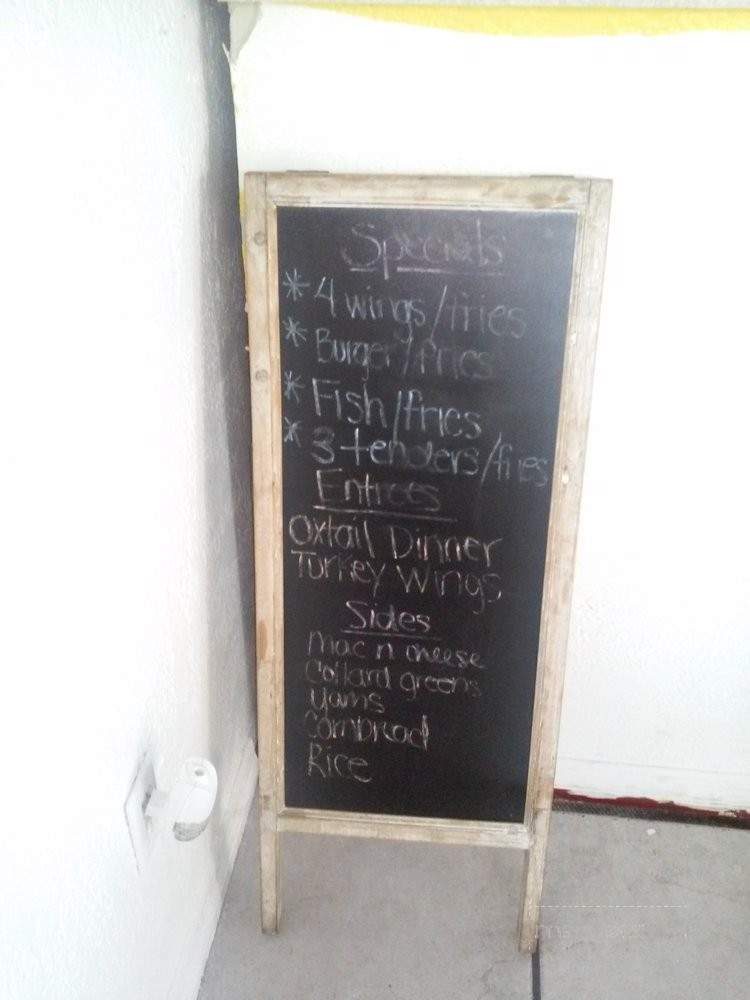 Specials
* 4 wings/fries
* Burger/fries
* Fish/fries
* 3 tenders/fries
Entrees
Oxtail Dinner
Turkey Wings
Sides
Mac n cheese
Collard greens
Yams
Cornbread
Rice